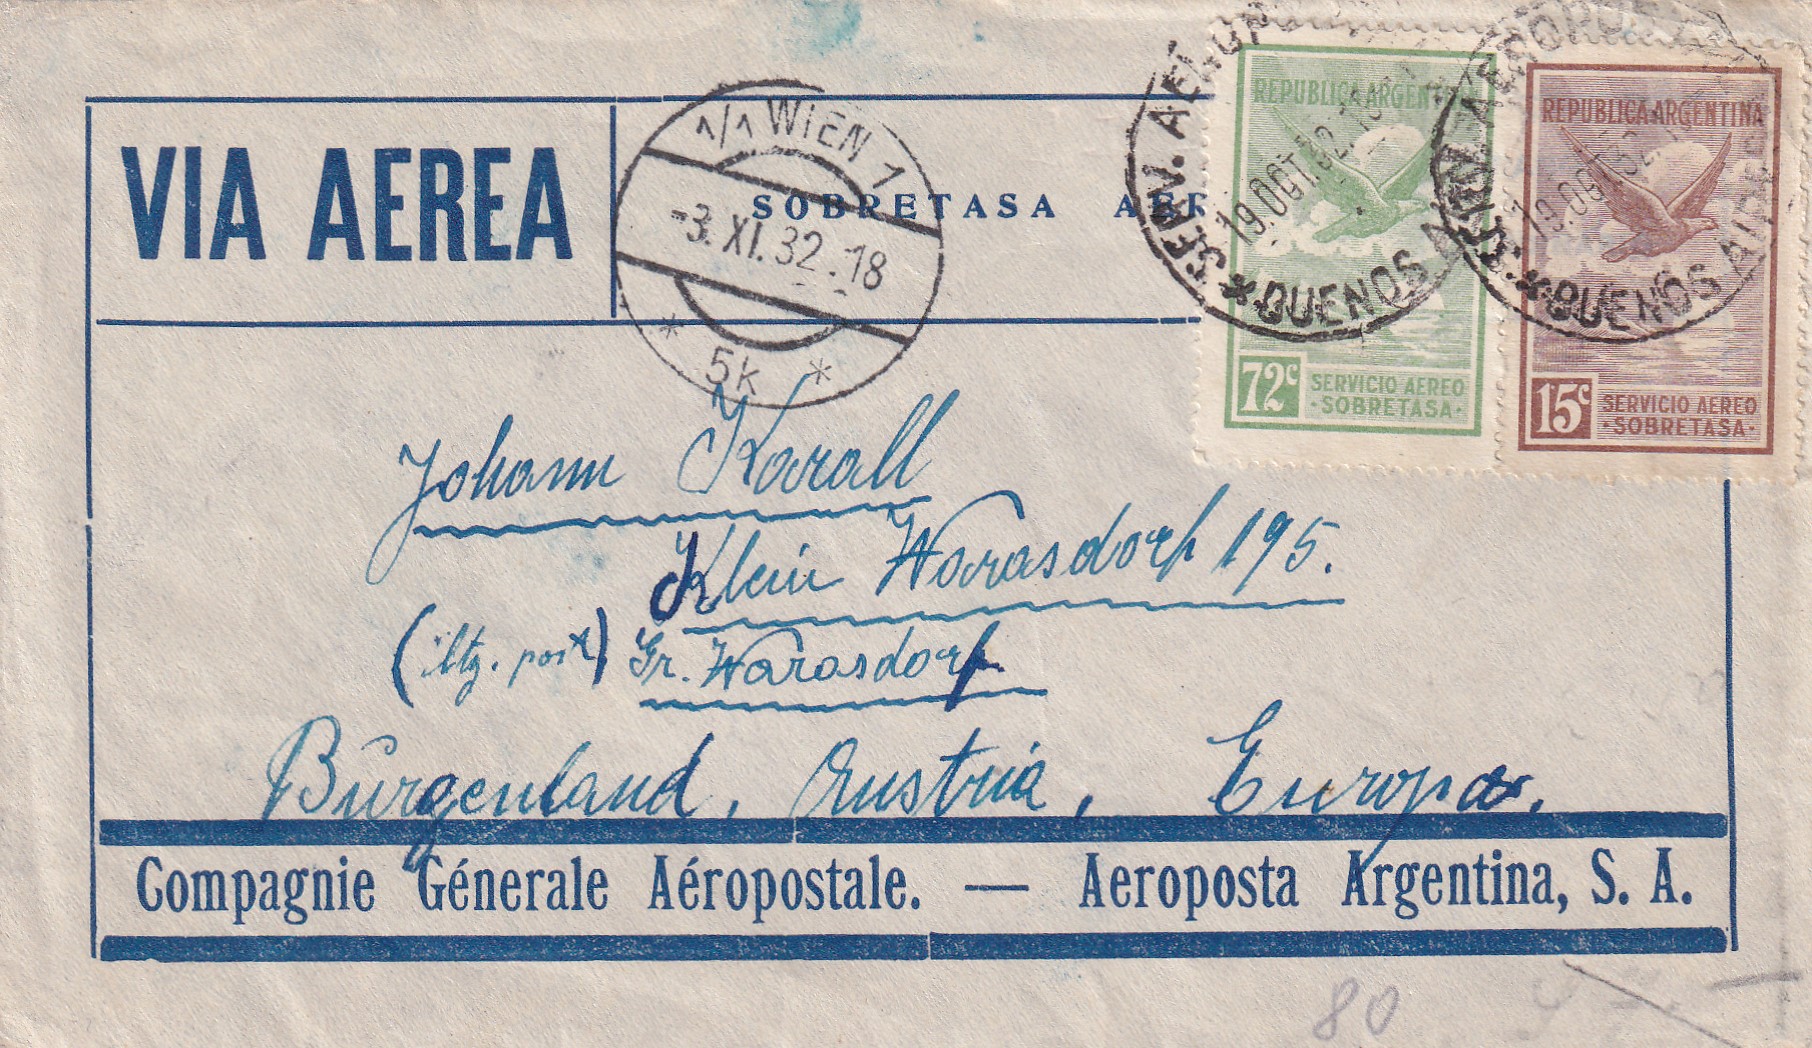 VIA AEREA
SOBRETASA AER
1/1 WIEN 1
-3.XI.32.-18
* 5k *
SERV. AEROPOSTAL
19.OCT.32.18
* BUENOS AIRES
REPUBLICA ARGENTINA
72c SERVICIO AEREO
·SOBRETASA·
SERV. AEROPOSTAL
19.OCT.32.18
* BUENOS AIRES
REPUBLICA ARGENTINA
15c SERVICIO AEREO
·SOBRETASA·
Johann Karall
Klein Warasdorf 195.
(ltz. post) Gr. Warasdorf
Burgenland, Austria, Europa.
Compagnie Génerale Aéropostale. — Aeroposta Argentina, S. A.
80